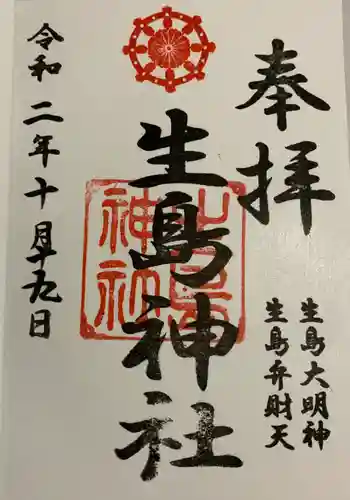 奉拝
生島大明神
生島弁財天
生島神社
令和二年十月十九日